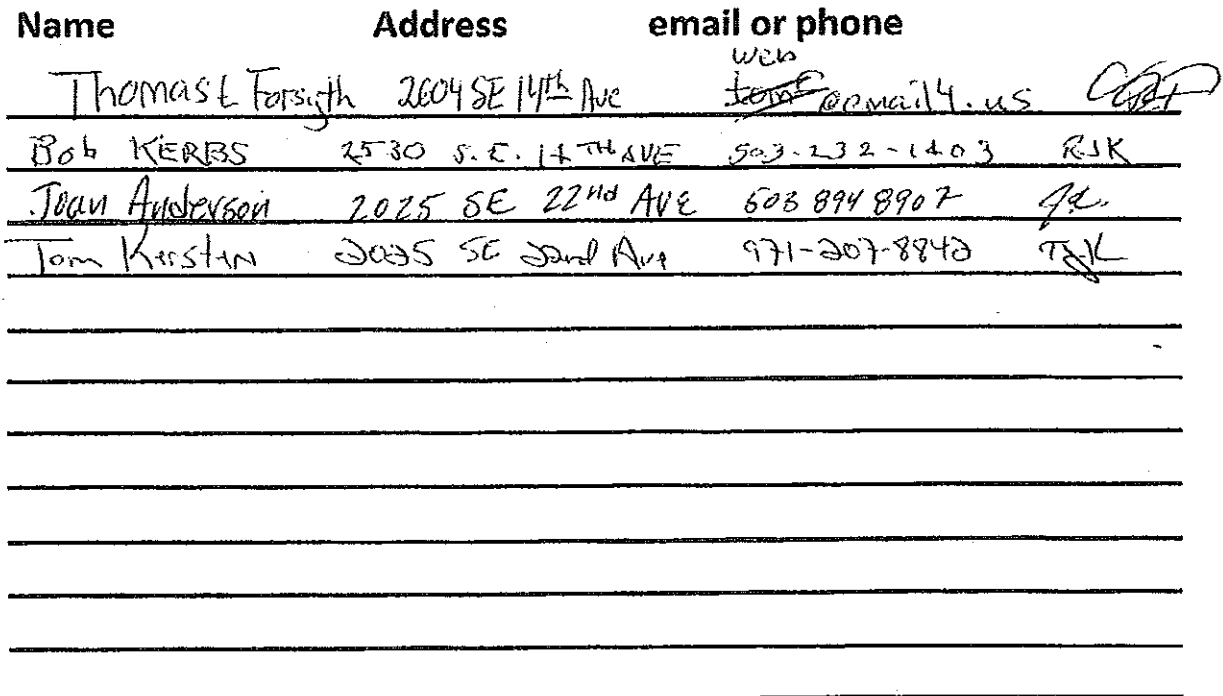 Name Address email or phone
web
Thomas E Forsyth 2604 SE 14th Ave @email4.us
Bob KERBS 2530 S.E. 14TH AVE 503-232-1403 RJK
Joan Anderson 2025 SE 22nd AVE 503 894 8907 Ja.
Tom Kirsten 2025 SE 22nd Ave 971-207-8842 TJK